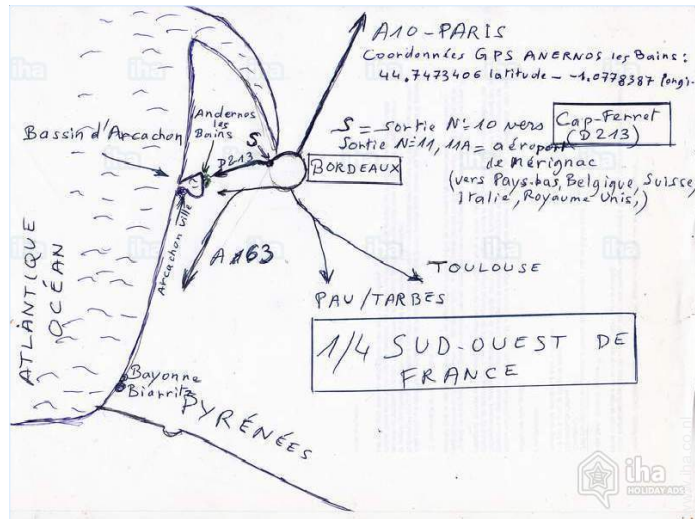 A10-PARIS
Coordonnées GPS ANERNOS les Bains:
44,7473406 latitude - -1.0778387 longi-
S = sortie N=10 vers
Cap-Ferret
(D213)
Sortie N=11, 11A = aéroport
de Mérignac
(vers Pays-bas, Belgique, Suisse,
Italie, Royaume Unis,)
Andernos
les
Bains
Bassin d'Arcachon
S
D213
BORDEAUX
Arcachon Ville
A 163
TOULOUSE
PAU/TARBES
1/4 SUD-OUEST DE
FRANCE
ATLÀNTIQUE
OCÉAN
Bayonne
Biarritz
PYRÉNÉES
iha
HOLIDAYADS
www.iha.co.nl